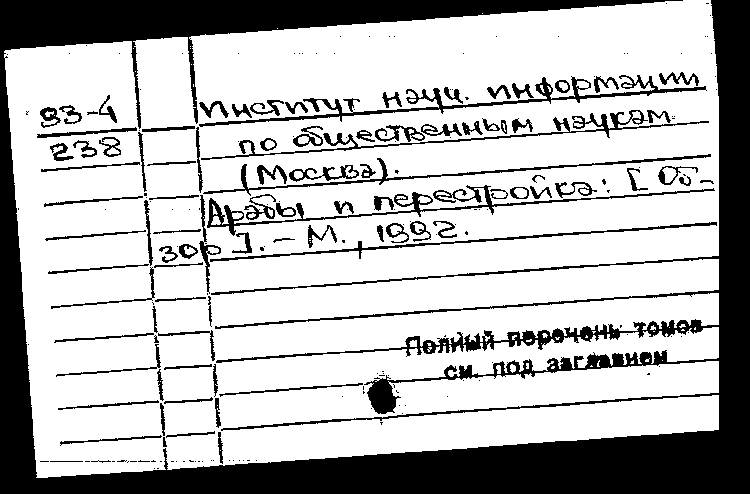 93-4
238
Институт науч. информации
по общественным наукам
(Москва).
Арабы и перестройка: [Об-
зор]. - М., 1992.
Полный перечень томов
см. под заглавием